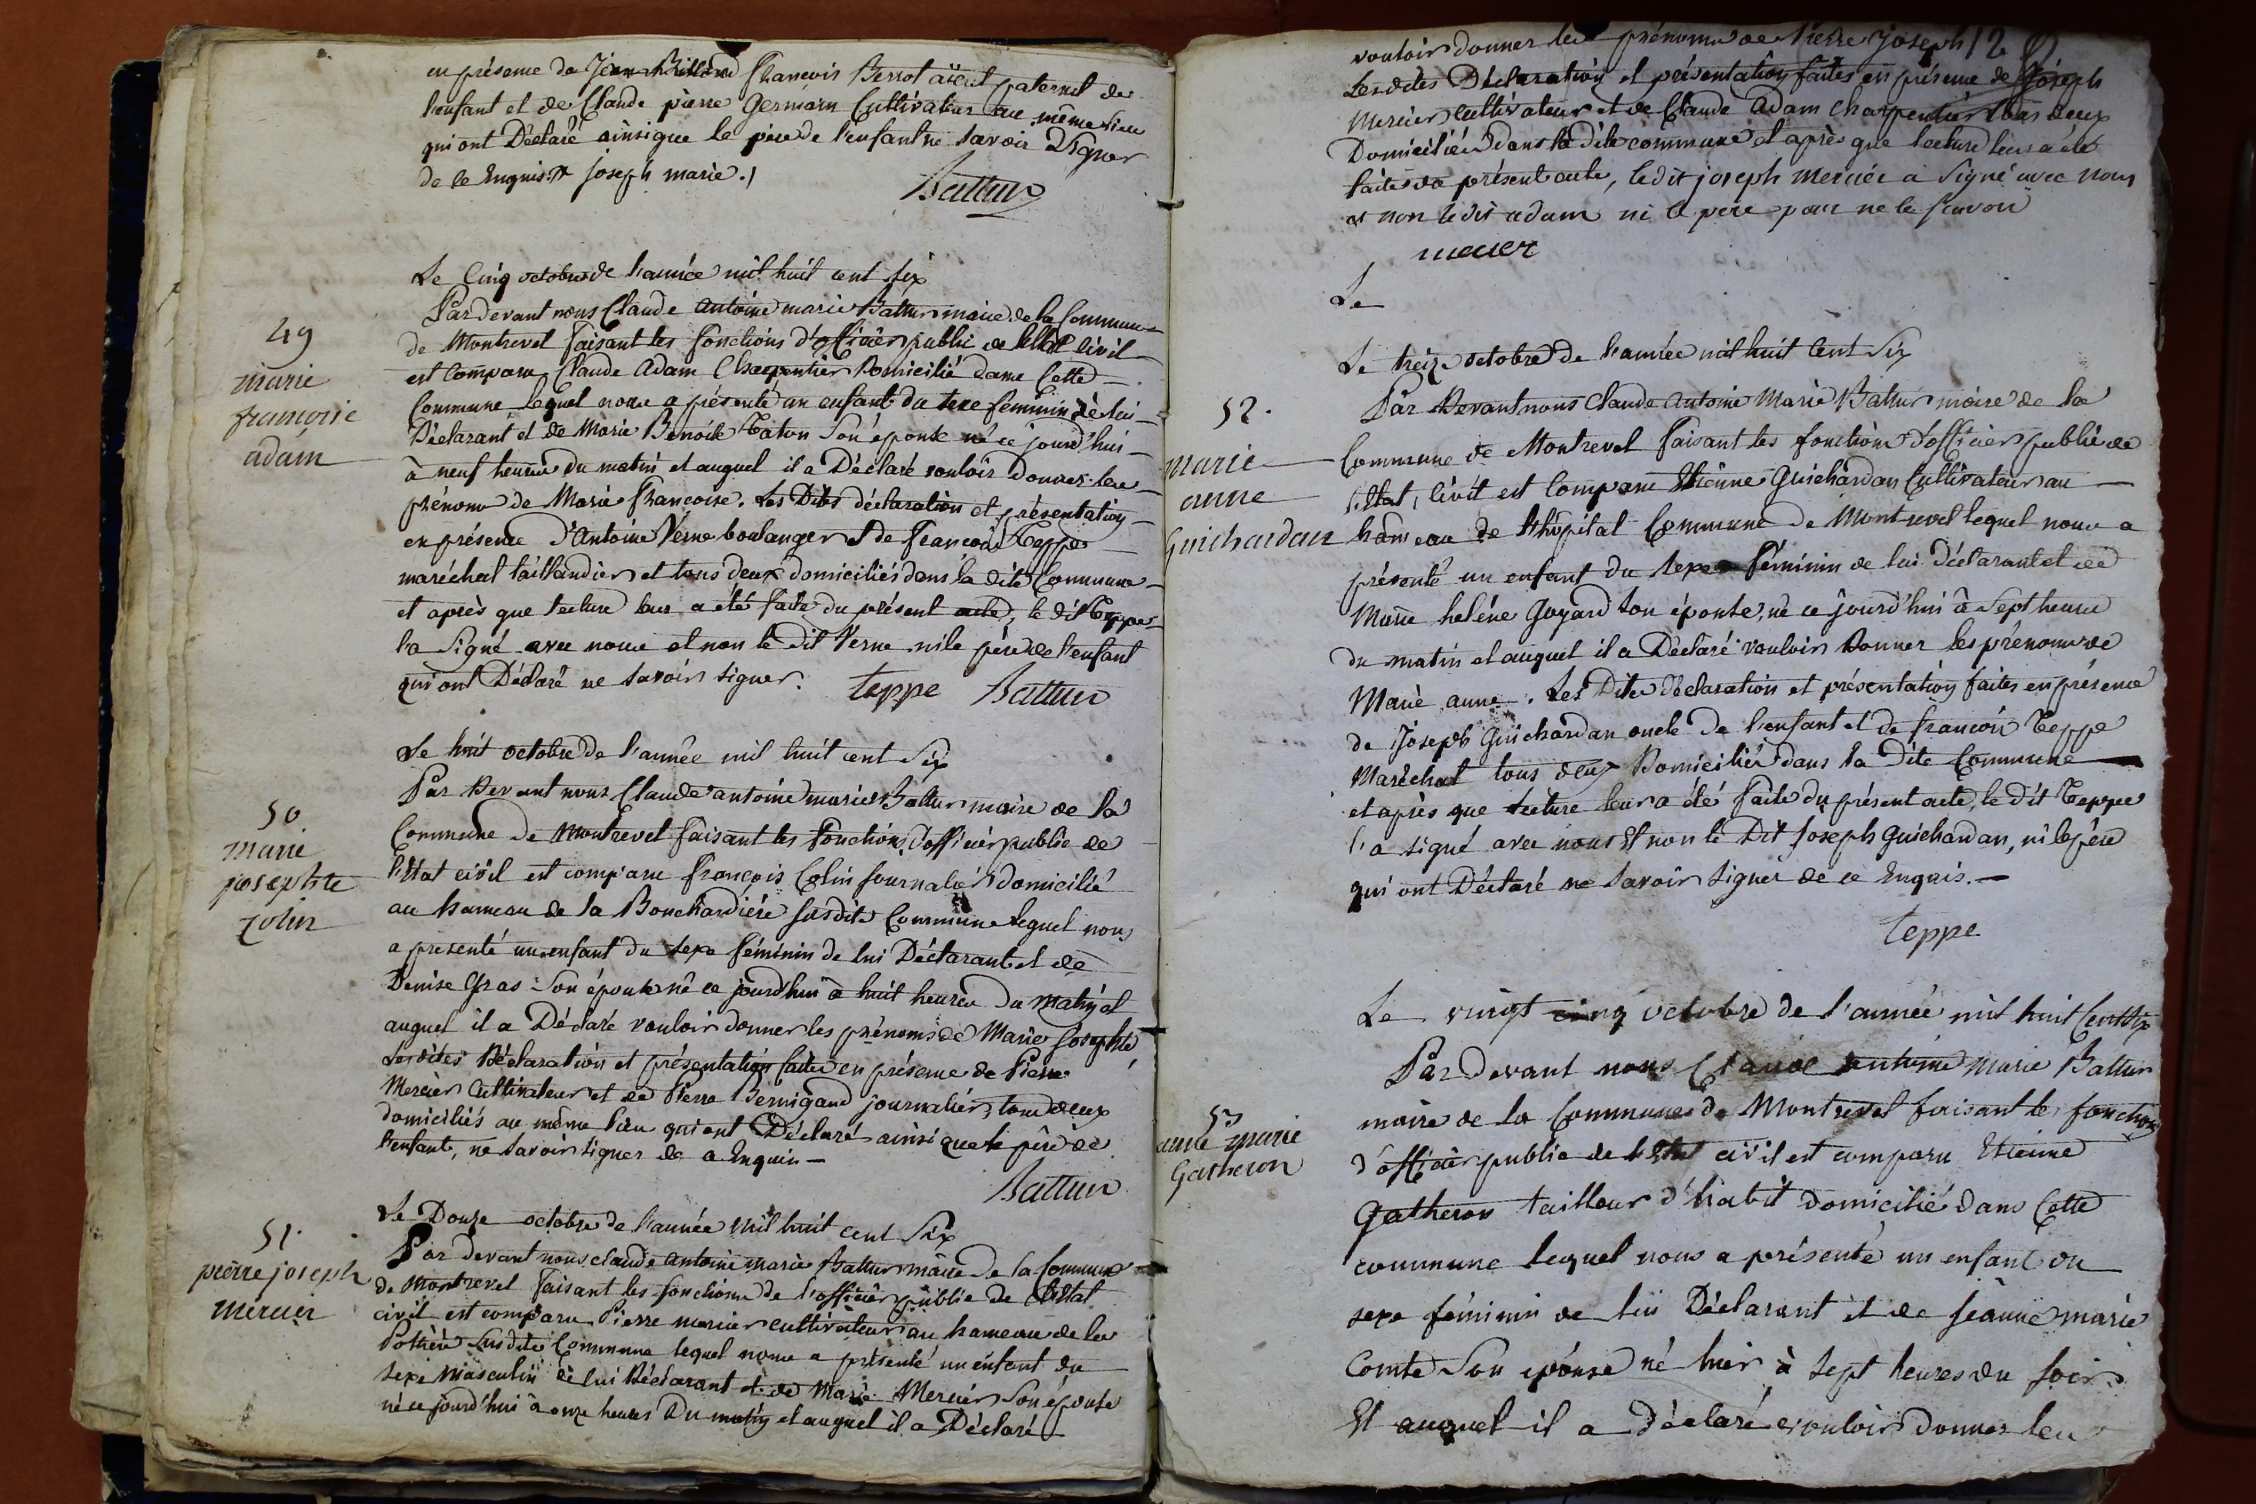 en présence de Jean François Berrot aïeul paternel de
l'enfant et de Claude pierre Germain Cultivateur au même lieu
qui ont Déclaré ainsi que le père de l'enfant ne savoir Signer
de ce Enquis. joseph marie.
Battur
Le Cinq octobre de l'année mil huit cent six
49
marie
françoise
adam
Par devant nous Claude antoine marie Battur maire de la Commune
de Montrevel faisant les fonctions d'officier public de l'Etat Civil
est Comparu Claude Adam Charpentier Domicilié dans Cette
Commune lequel nous a présenté un enfant du sexe féminin de lui
Déclarant et de Marie Benoite Taton Son épouse né ce jourd'hui
à neuf heures du matin et auquel il a Déclaré vouloir Donner les
prénoms de Marie Françoise. Les Dites déclaration et présentation
en présence d'Antoine Verne boulanger et de François Teppe
maréchal taillandier et tous deux domiciliés dans la dite Commune
et après que lecture leur a été faite du présent acte, le dit Teppe
l'a Signé avec nous et non le dit Verne ni le père de l'enfant
qui ont Déclaré ne savoir signer. teppe Battur
Le huit octobre de l'année mil huit cent Six
50
marie
josephte
Colin
Par Devant nous Claude antoine marie Battur maire de la
Commune de Montrevel faisant les fonctions d'officier public de
l'Etat civil est comparu françois Colin journalier domicilié
au hameau de la Bouchardière susdite Commune lequel nous
a présenté un enfant du sexe féminin de lui Déclarant et de
Denise Gras son épouse né ce jourd'hui à huit heures du matin et
auquel il a Déclaré vouloir donner les prénoms de Marie Josephte
Lesdites Déclaration et présentation faites en présence de Pierre
Mercier Cultivateur et de Pierre Bernigaud journalier, tous deux
domiciliés au même lieu qui ont Déclaré ainsi que le père de
l'enfant, ne savoir signer de ce Enquis
Battur
Le Douze octobre de l'année mil huit cent Six
51.
pierre joseph
mercier
Par devant nous claude antoine marie Battur maire de la Commune
de Montrevel faisant les fonctions de l'officier public de l'Etat
civil est comparu Pierre mercier cultivateur au hameau de la
Pottière susdite Commune lequel nous a présenté un enfant du
sexe masculin de lui Déclarant et de Marie Mercier Son épouse
né ce jourd'hui à onze heures Du matin et auquel il a Déclaré
12
vouloir donner les prénoms de Pierre joseph
Lesdites Déclaration et présentation faites en présence de Joseph
Mercier Cultivateur et de Claude Adam Charpentier tous deux
Domiciliés dans la dite commune et après que lecture leur a été
faite du présent acte, ledit joseph mercier a signé avec nous
et non ledit adam ni le père pour ne le scavoir
mecier
Le
Le treize octobre de l'année mil huit Cent Six
52.
marie
anne
Guichardan
Par Devant nous Claude antoine Marie Battur maire de la
Commune de Montrevel faisant les fonctions d'officier public de
l'Etat Civil est Comparu Etienne Guichardan Cultivateur au
hameau de L'hôpital Commune de Montrevel lequel nous a
présenté un enfant du sexe féminin de lui Déclarant et de
Marie heléne Goyard son épouse, né ce jourd'hui à Sept heures
du matin et auquel il a Déclaré vouloir Donner les prénoms de
Marie anne. Les Dites déclaration et présentation faites en présence
de Joseph Guichardan oncle de l'enfant et de françois Teppe
Maréchal tous deux Domiciliés dans la dite Commune
et après que lecture leur a été faite du présent acte, le dit Teppe
l'a signé avec nous et non le Dit Joseph Guichardan, ni le père
qui ont Déclaré ne Savoir Signer de ce Enquis.
teppe
Le vingt cinq octobre de l'année mil huit Cent Six
53
anne marie
Gatheron
Par devant nous Claude antoine Marie Battur
maire de la Commune de Montrevel faisant les fonctions
d'officier public de l'Etat civil est comparu Etienne
Gatheron tailleur d'habit domicilié dans Cette
commune lequel nous a présenté un enfant du
sexe féminin de lui Déclarant et de Jeanne marie
Comte Son epouse né hier à sept heures du soir
Et auquel il a déclaré vouloir donner les